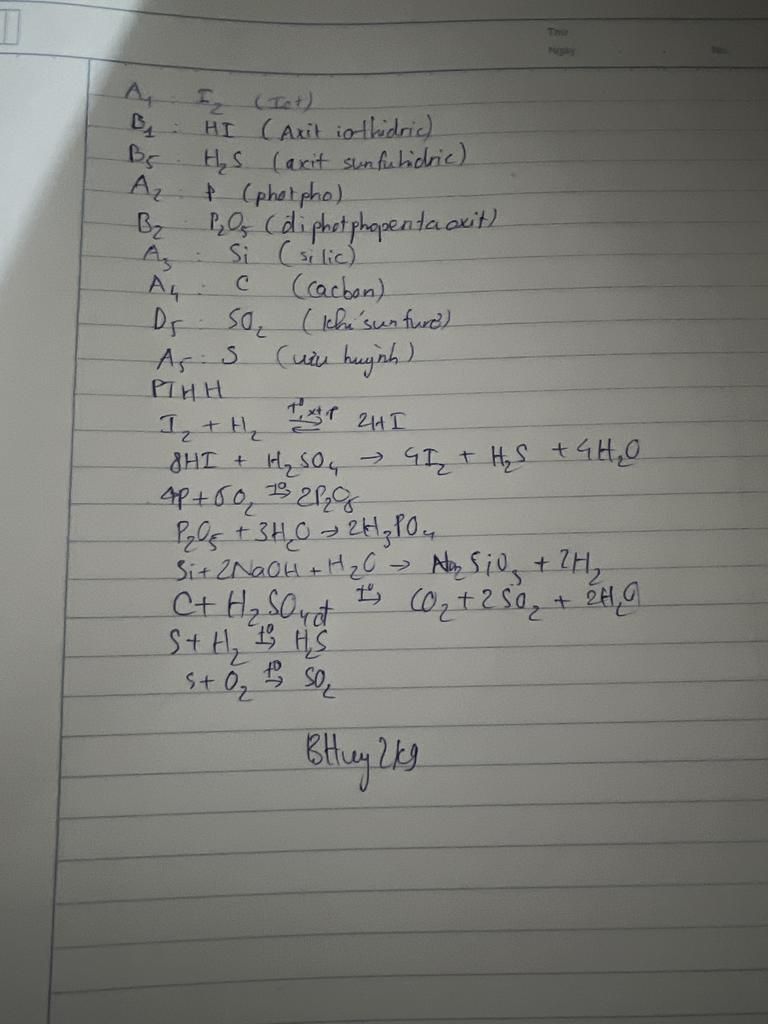 Thứ
Ngày No.
A₁ : I₂ (Iot)
B₁ : HI (Axit iothidric)
B₅ : H₂S (axit sunfuhidric)
A₂ : P (photpho)
B₂ P₂O₅ (diphotphopentaoxit)
A₃ : Si (silic)
A₄ : C (cacbon)
D₅ : SO₂ (khí sunfurơ)
A₅ : S (lưu huỳnh)
PTHH
I₂ + H₂ ⇌ 2HI
8HI + H₂SO₄ → 4I₂ + H₂S + 4H₂O
4P + 5O₂ →t° 2P₂O₅
P₂O₅ + 3H₂O → 2H₃PO₄
Si + 2NaOH + H₂O → Na₂SiO₃ + 2H₂
C + H₂SO₄đ →t° CO₂ + 2SO₂ + 2H₂O
S + H₂ →t° H₂S
S + O₂ →t° SO₂
BHuy2kg